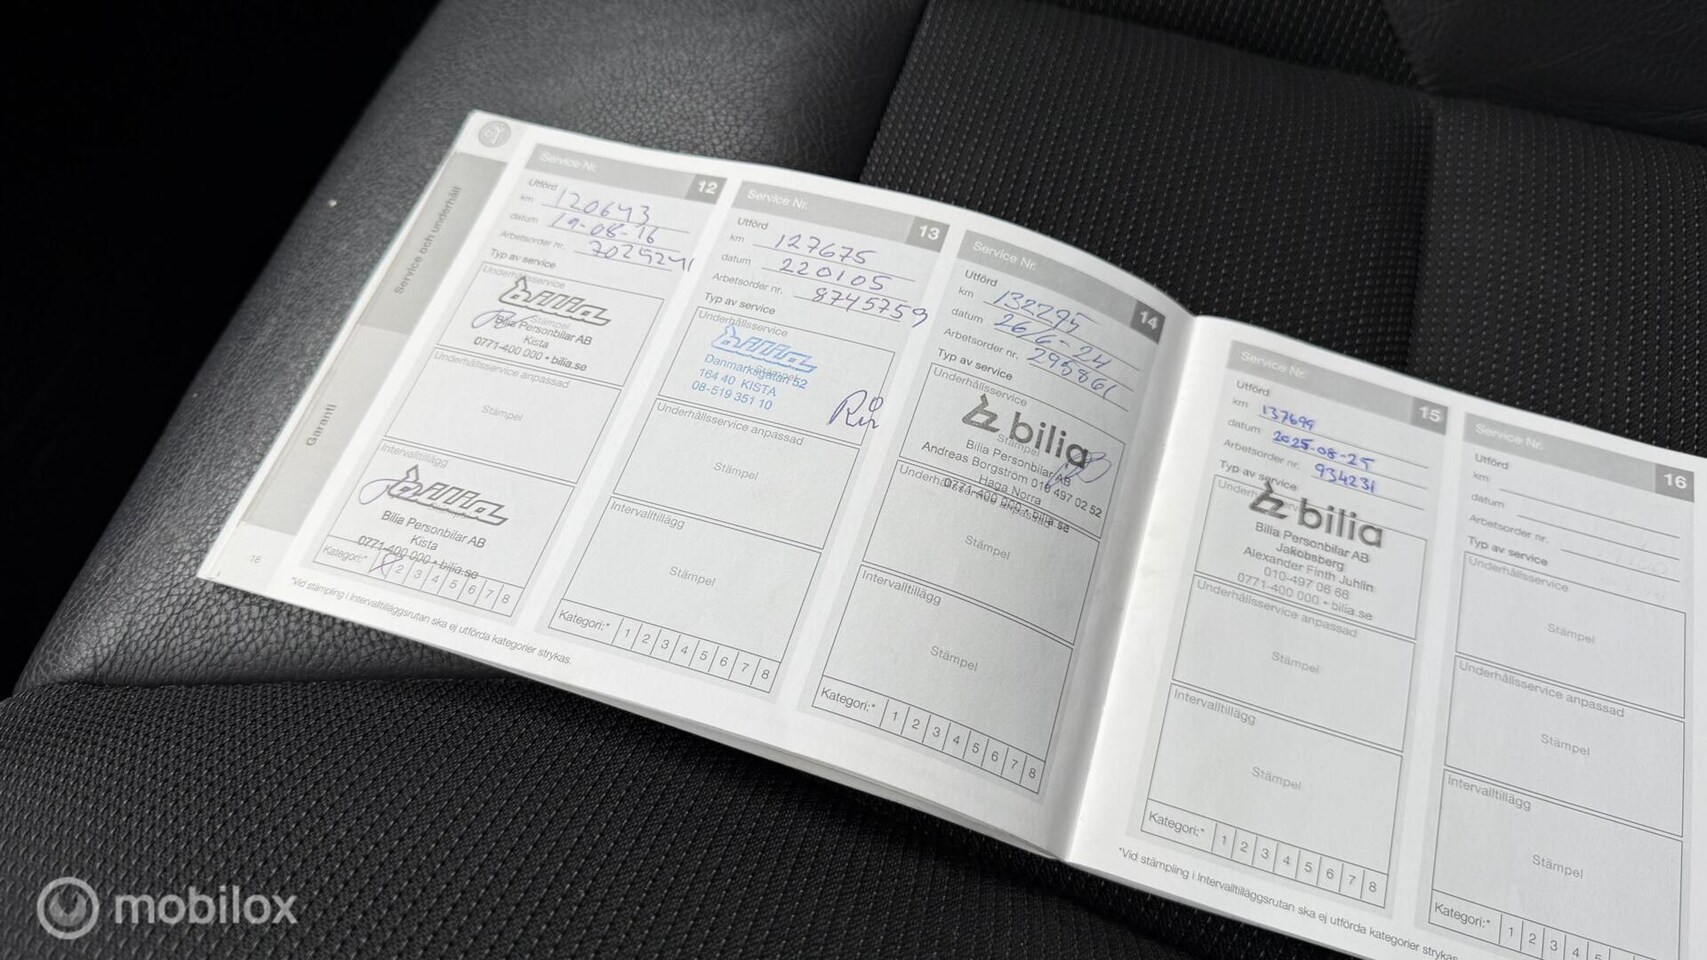 Service och underhåll
Garanti
18
Service Nr. 12
Utförd
km 120643
datum 19-08-16
Arbetsorder nr.
Typ av service
Underhållsservice
bilia
Stämpel
Bilia Personbilar AB
Kista
0771-400 000 • bilia.se
Underhållsservice anpassad
Stämpel
Intervalltillägg
bilia
Bilia Personbilar AB
Kista
0771-400 000 • bilia.se
Kategori:* 2 3 4 5 6 7 8
Service Nr. 13
Utförd
km 127675
datum 220105
Arbetsorder nr. 8745759
Typ av service
Underhållsservice
bilia
Stämpel
Danmarksgatan 52
164 40 KISTA
08-519 351 10
Underhållsservice anpassad
Stämpel
Intervalltillägg
Stämpel
Kategori:* 1 2 3 4 5 6 7 8
Service Nr. 14
Utförd
km 132295
datum 26/6-24
Arbetsorder nr. 295861
Typ av service
Underhållsservice
bilia
Stämpel
Bilia Personbilar AB
Andreas Borgström 010 497 02 52
Haga Norra
0771-400 000 • bilia.se
Underhållsservice anpassad
Stämpel
Intervalltillägg
Stämpel
Kategori:* 1 2 3 4 5 6 7 8
*Vid stämpling i Intervalltilläggsrutan ska ej utförda kategorier strykas.
Service Nr. 15
Utförd
km 137699
datum 2025-08-25
Arbetsorder nr. 934231
Typ av service
bilia
Bilia Personbilar AB
Jakobsberg
Alexander Finth Juhlin
010-497 08 88
0771-400 000 • bilia.se
Underhållsservice anpassad
Stämpel
Intervalltillägg
Stämpel
Kategori:* 1 2 3 4 5 6 7 8
Service Nr. 16
Utförd
km
datum
Arbetsorder nr.
Typ av service
Underhållsservice
Stämpel
Underhållsservice anpassad
Stämpel
Intervalltillägg
Stämpel
Kategori:* 1 2 3 4 5
*Vid stämpling i Intervalltilläggsrutan ska ej utförda kategorier strykas
mobilox